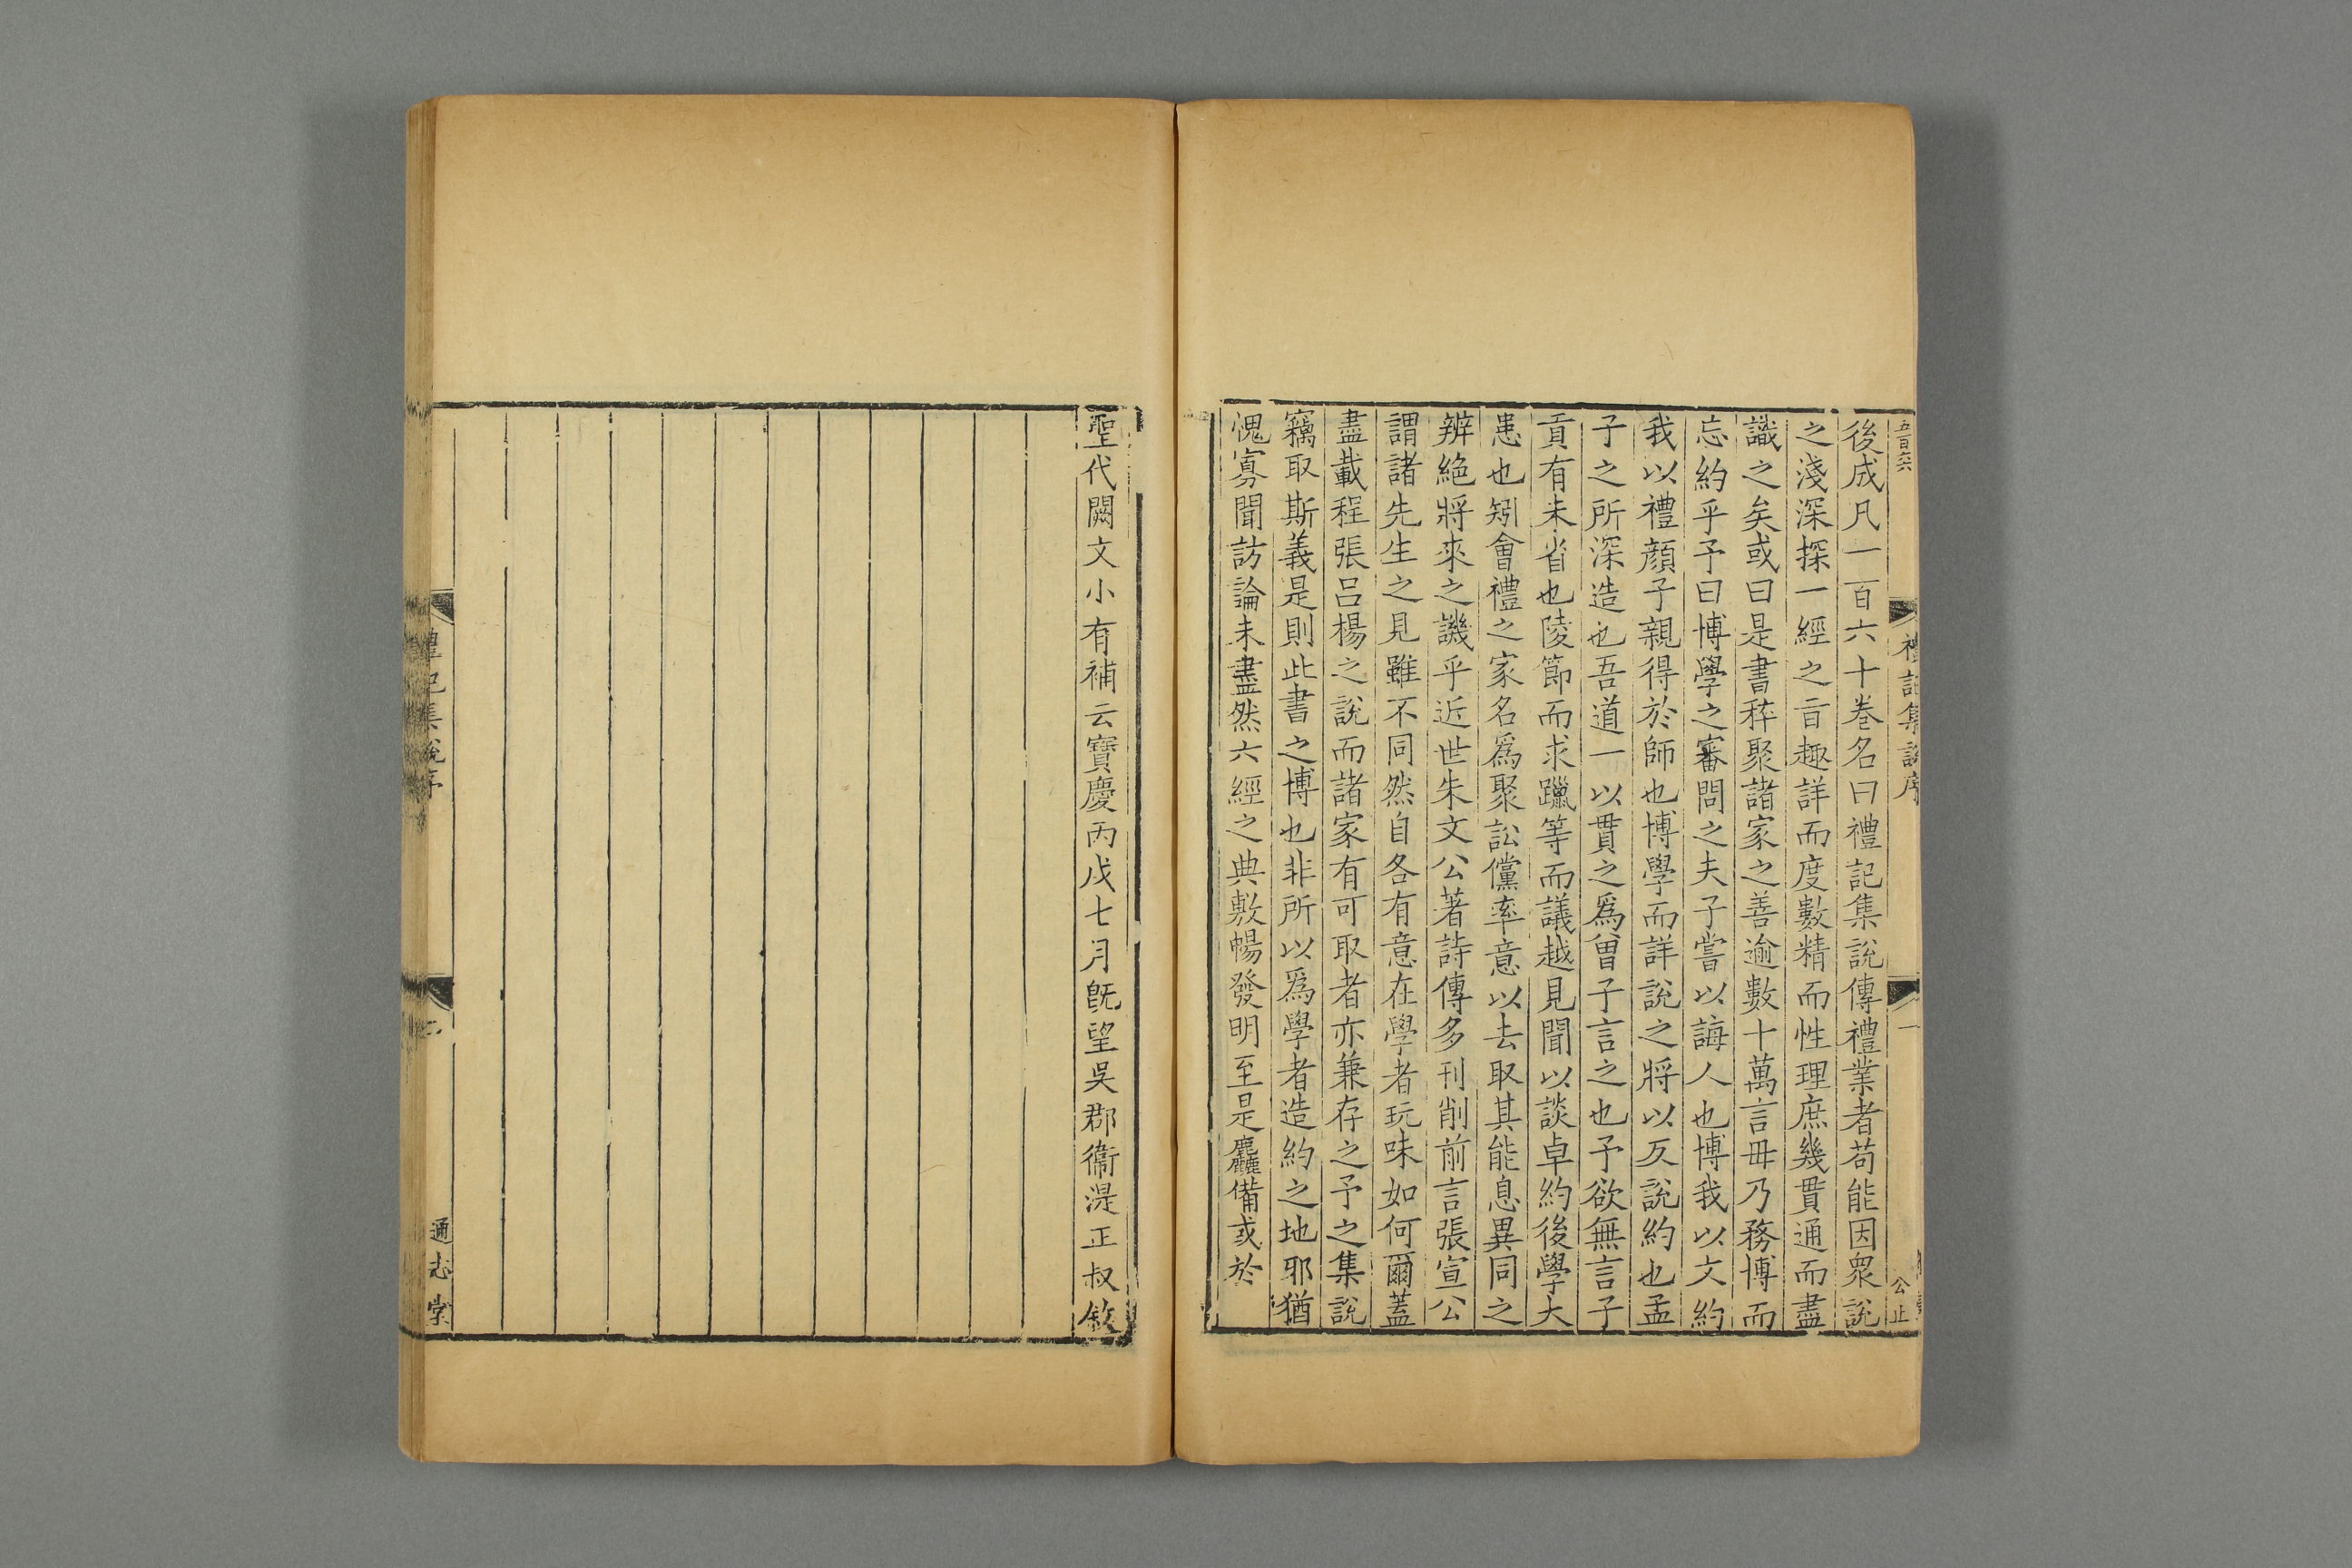 五百六六
禮記集說序
一
公止
後成凡一百六十卷名曰禮記集說傳禮業者苟能因眾說
之淺深探一經之旨趣詳而度數精而性理庶幾貫通而盡
識之矣或曰是書稡聚諸家之善逾數十萬言毋乃務博而
忘約乎予曰博學之審問之夫子嘗以誨人也博我以文約
我以禮顔子親得於師也博學而詳說之將以反說約也孟
子之所深造也吾道一以貫之爲曾子言之也予欲無言子
貢有未省也陵節而求躐等而議越見聞以談卓約後學大
患也矧會禮之家名爲聚訟儻率意以去取其能息異同之
辨絶將來之譏乎近世朱文公著詩傳多刊削前言張宣公
謂諸先生之見雖不同然自各有意在學者玩味如何爾蓋
盡載程張呂楊之說而諸家有可取者亦兼存之予之集說
竊取斯義是則此書之博也非所以爲學者造約之地邪猶
愧寡聞訪論未盡然六經之典敷暢發明至是麤備或於
聖代闕文小有補云寶慶丙戌七月旣望吳郡衞湜正叔敘
禮記集說序
二
通志堂